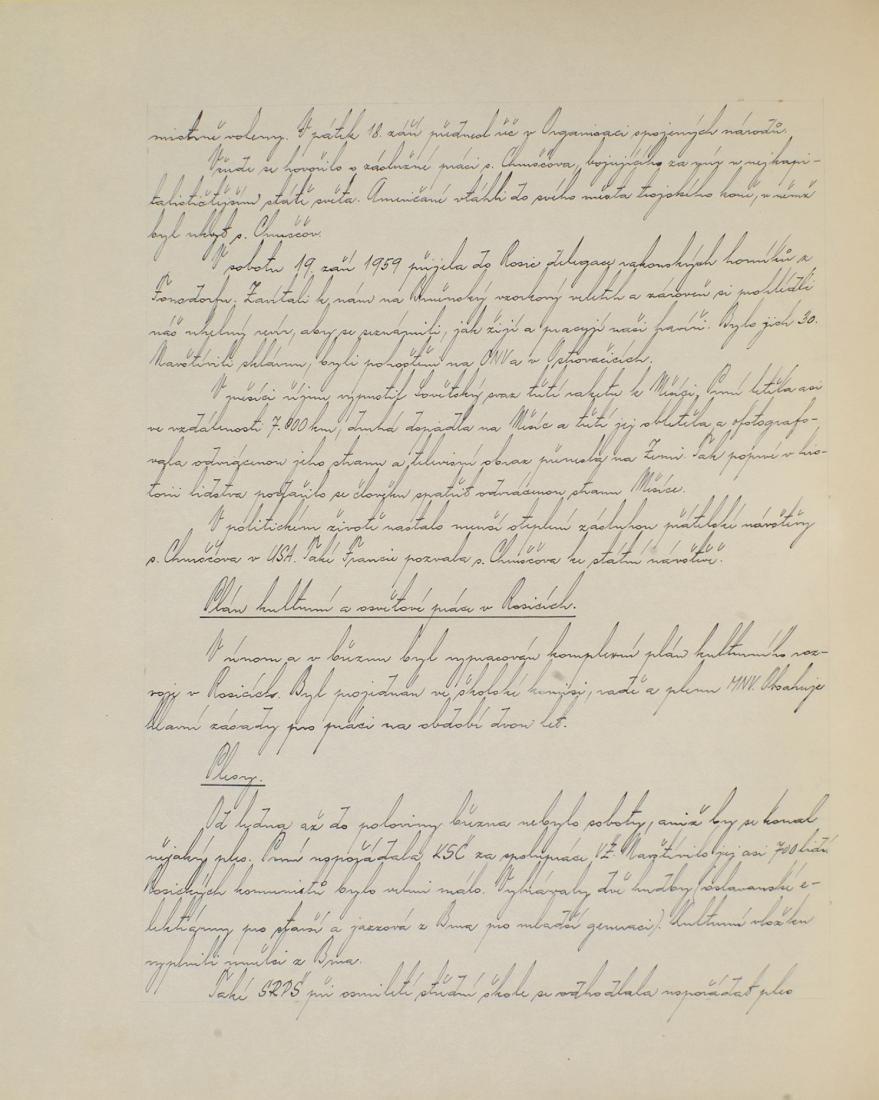 mistrně voleny. V pátek 18. září přednesl řeč v Organisaci spojených národů.
Všude se hovořilo o záslužné práci s. Chruščova, bojujícího za mír v nejkapi-
talističtějším státě světa. Američané vtáhli do svého města trojského koně, v němž
byl ukryt s. Chruščov.
V sobotu 19. září 1959 přijela do Rosic delegace rakouských horníků z
Zavítali k nám na Brněnský vzorkový veletrh a zároveň si prohlédli
náš uhelný revír, aby se seznámili, jak žijí a pracují naši havíři. Bylo jich 30.
Navštívili sklárnu, byli pohoštěni na ONV a v Ostrovačicích.
V měsíci říjnu vypustil Sovětský svaz třetí raketu k Měsíci. První letěla asi
ve vzdálenosti 7.000 km, druhá dopadla na Měsíc a třetí jej obletěla a ofotografo-
vala odvrácenou jeho stranu a televisní obraz přenesla na Zemi. Tak poprvé v his-
torii lidstva podařilo se člověku spatřit odvrácenou stranu Měsíce.
V politickém životě nastalo menší oteplení zásluhou přátelské návštěvy
s. Chruščova v USA. Také Francie pozvala s. Chruščova ke státní návštěvě.
Plán kulturní a osvětové práce v Rosicích.
V únoru a v březnu byl vypracován komplexní plán kulturního roz-
voje v Rosicích. Byl projednán ve školské komisi, radě a plenu MNV. Obsahuje
hlavní zásady pro práci na období dvou let.
Plesy.
Od ledna až do poloviny března nebylo soboty, aniž by se konal
nějaký ples. První uspořádala KSČ za spolupráce VŽ. Navštívilo jej asi 700 lidí.
Rosických komunistů bylo velmi málo. Vyhrávaly dvě hudby (oslavanské e-
lektrárny pro starší a jazzová z Brna pro mladší generaci). Kulturní vložku
vyplnili umělci z Brna.
Také SRPŠ při osmileté střední škole se odhodlala uspořádat ples